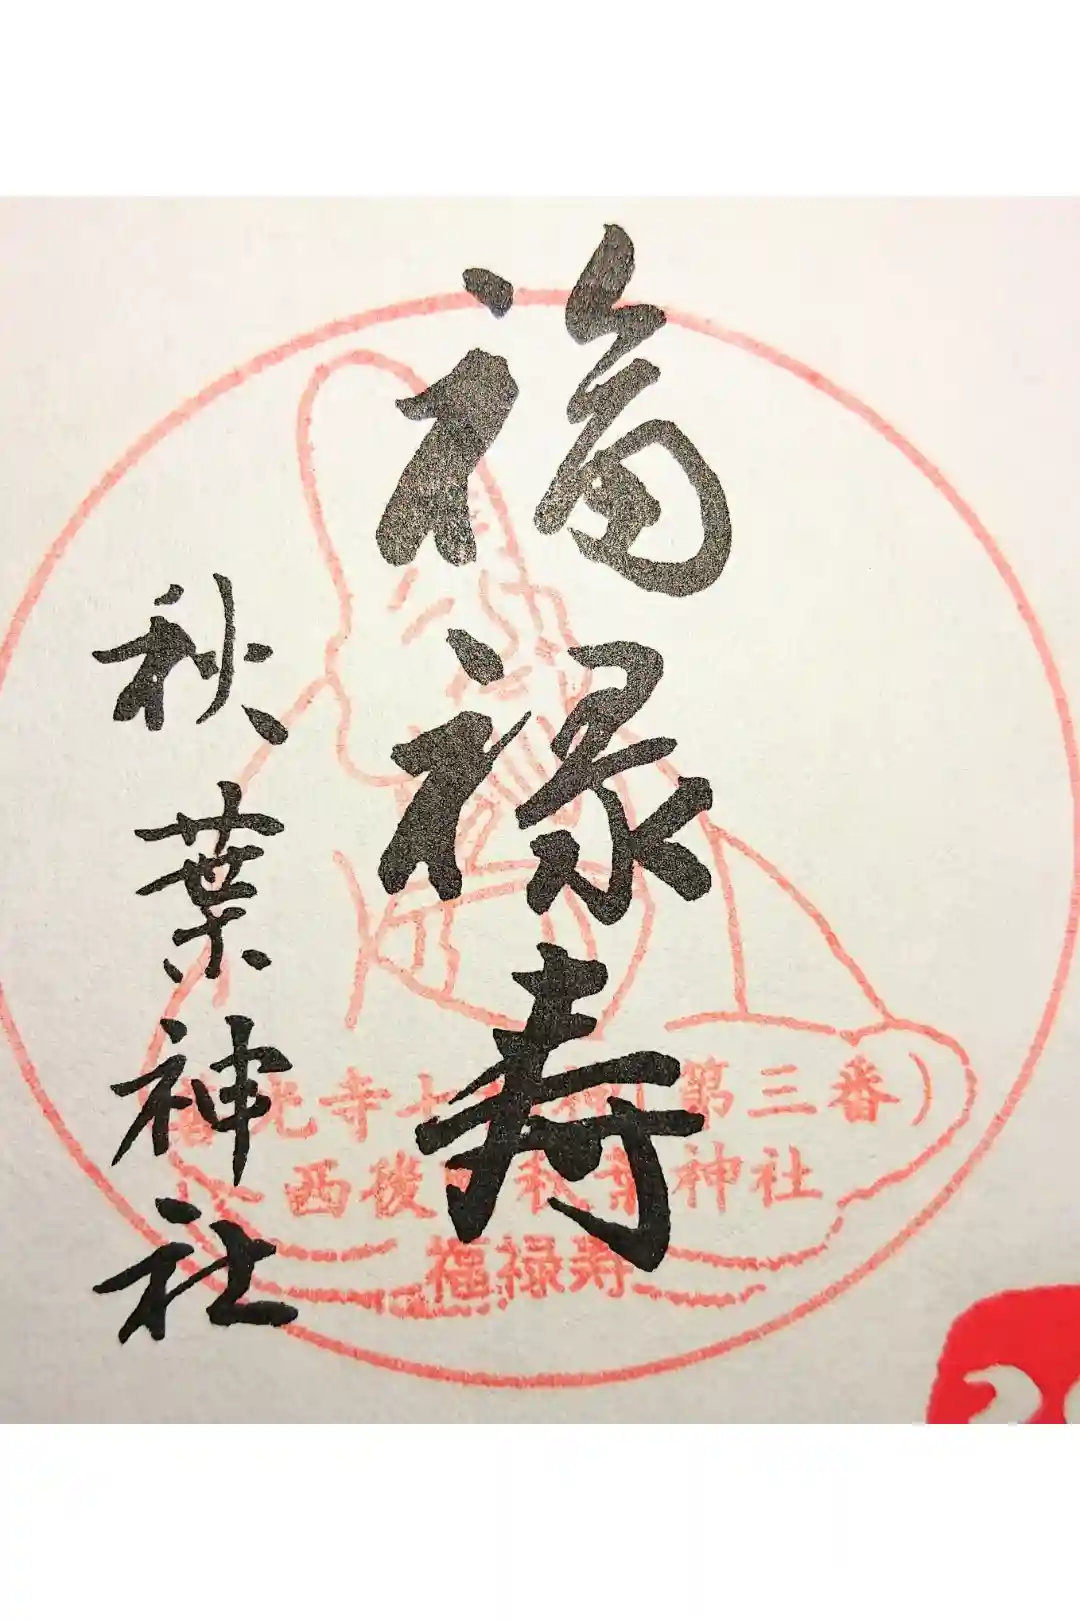 福禄寿
秋葉神社
善光寺七福神(第三番)
西後町秋葉神社
福禄寿